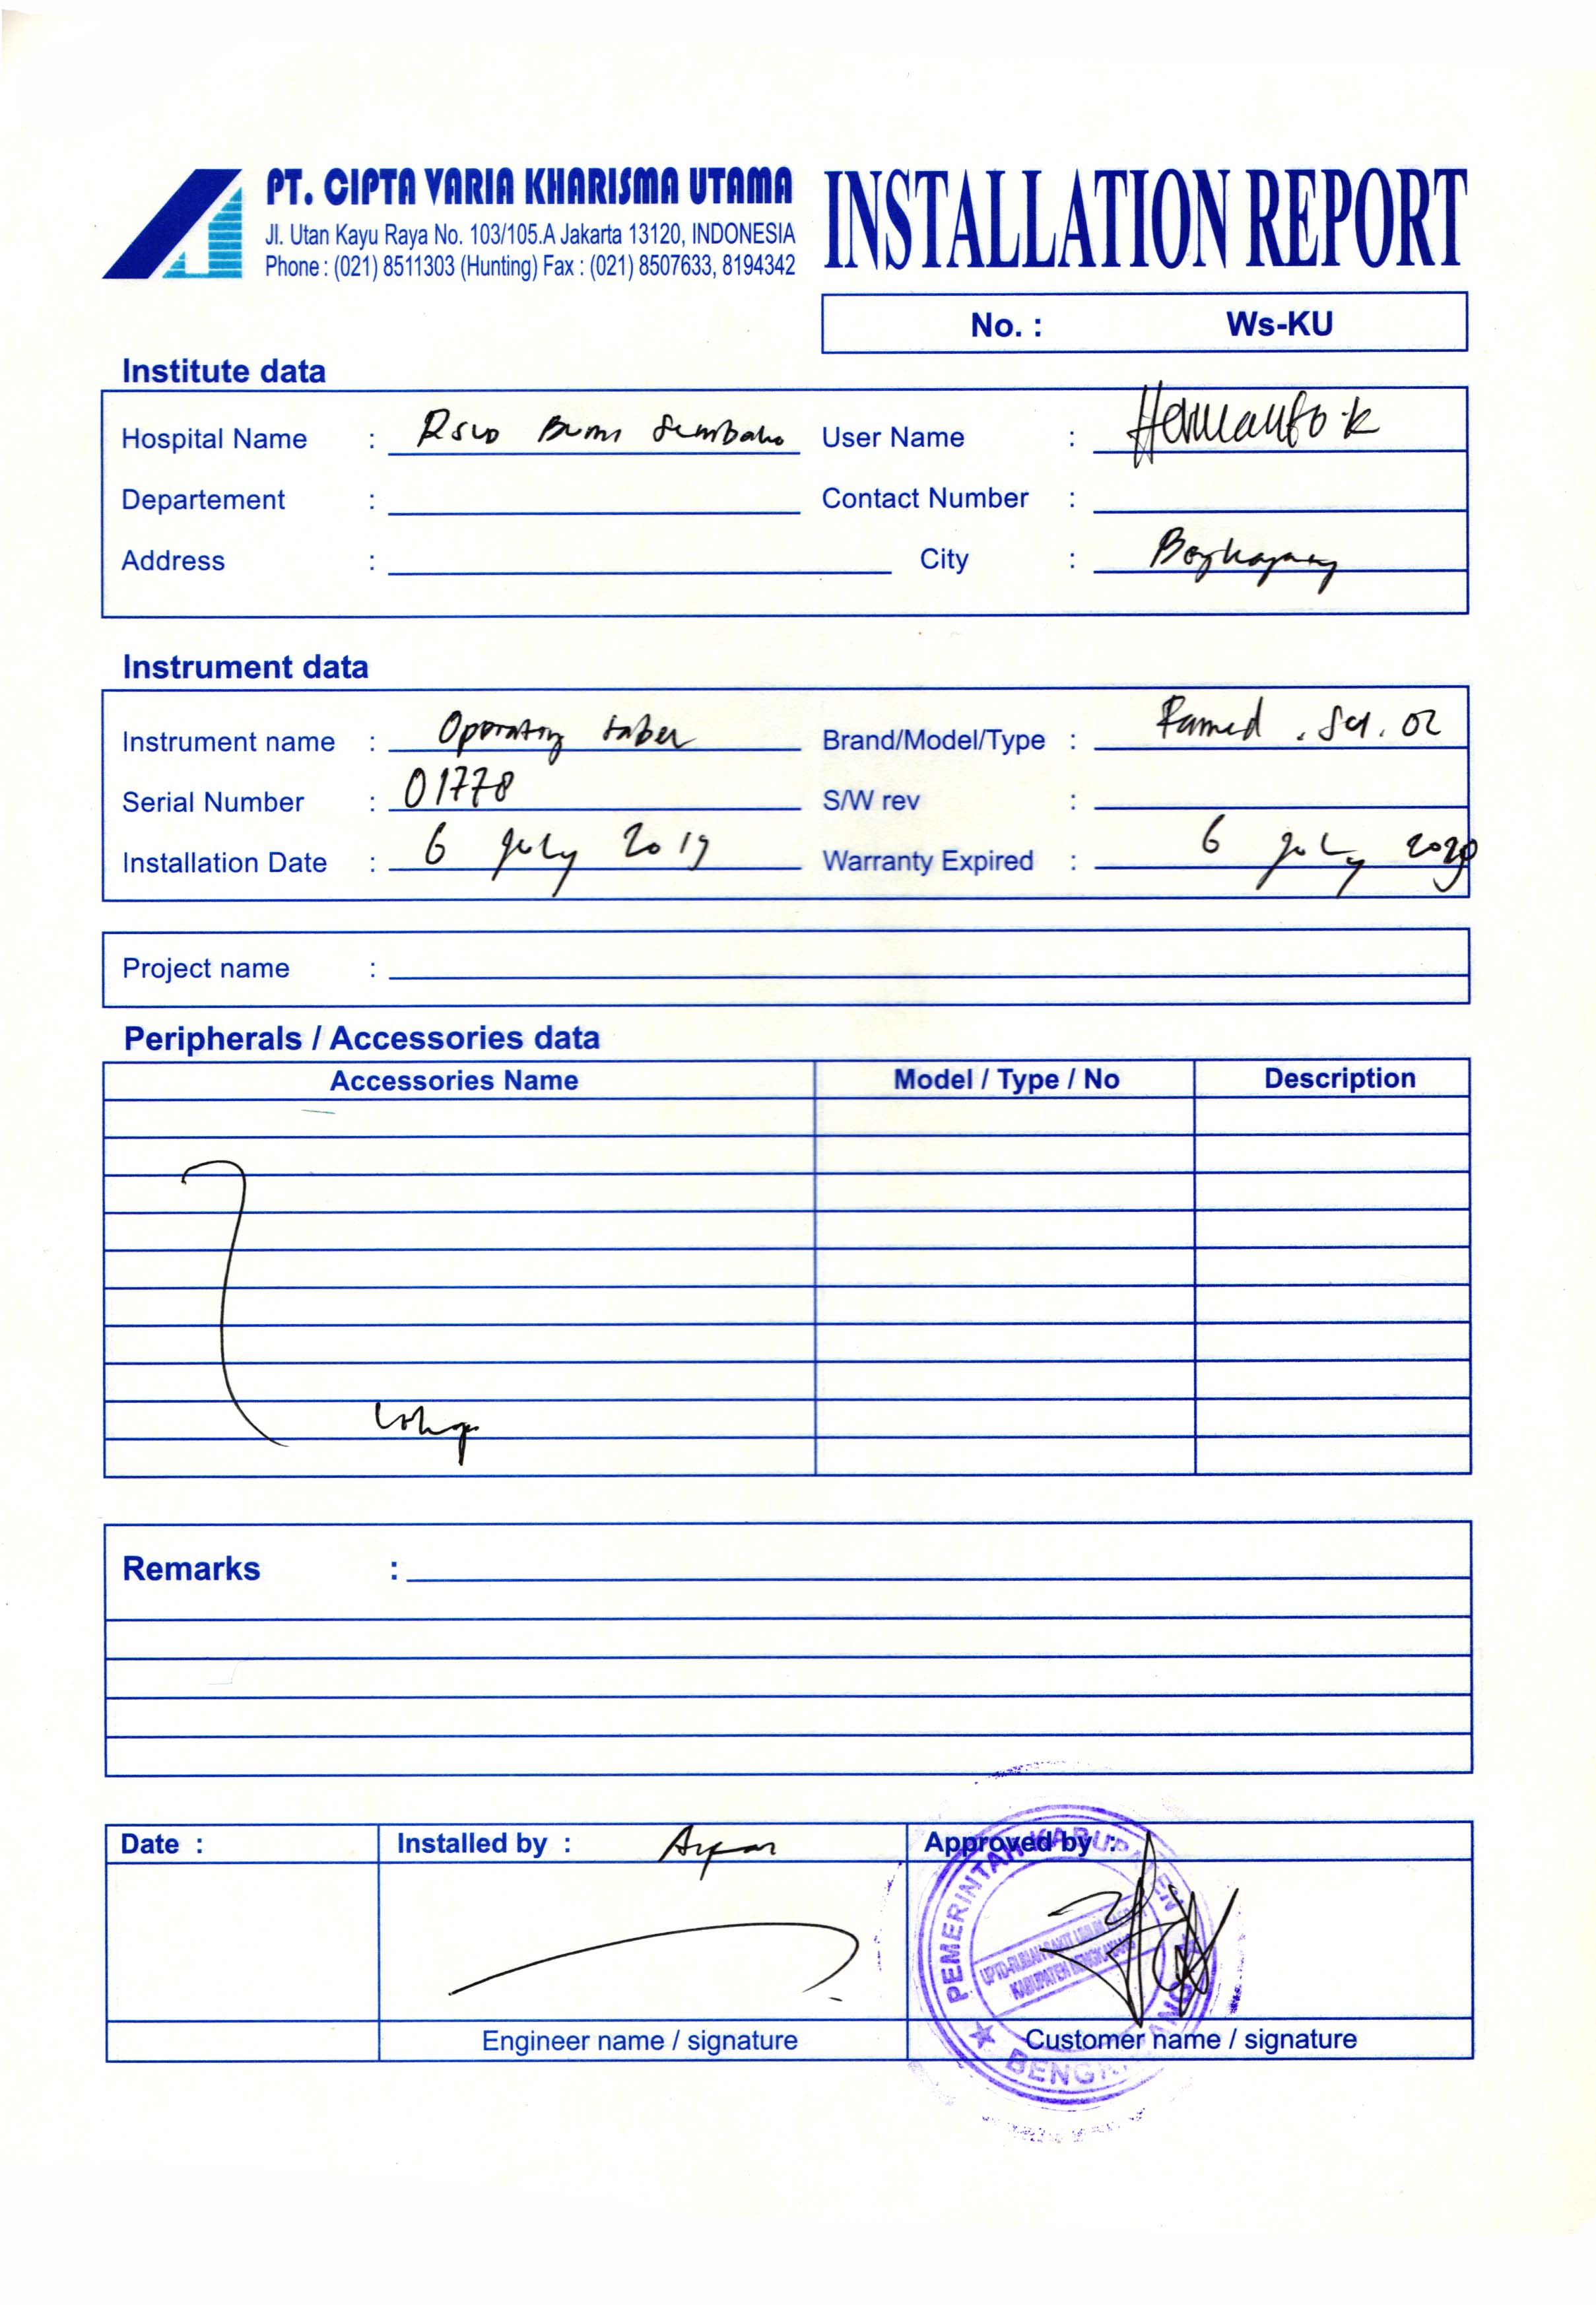 PT. CIPTA VARIA KHARISMA UTAMA
Jl. Utan Kayu Raya No. 103/105.A Jakarta 13120, INDONESIA
Phone : (021) 8511303 (Hunting) Fax : (021) 8507633, 8194342
INSTALLATION REPORT
No. : Ws-KU
Institute data
Hospital Name : RSUD Bumi User Name : Hermanto.K
Departement : Contact Number :
Address : City : Bengkayang
Instrument data
Instrument name : Operating Brand/Model/Type : Famed . SU . 02
Serial Number : 01778 S/W rev :
Installation Date : 6 July 2019 Warranty Expired : 6 July 2020
Project name :
Peripherals / Accessories data
Accessories Name Model / Type / No Description
Remarks :
Date : Installed by : Approved by :
PEMERINTAH KABUPATEN
KABUPATEN BENGKAYANG
BENGKAYANG
Engineer name / signature Customer name / signature